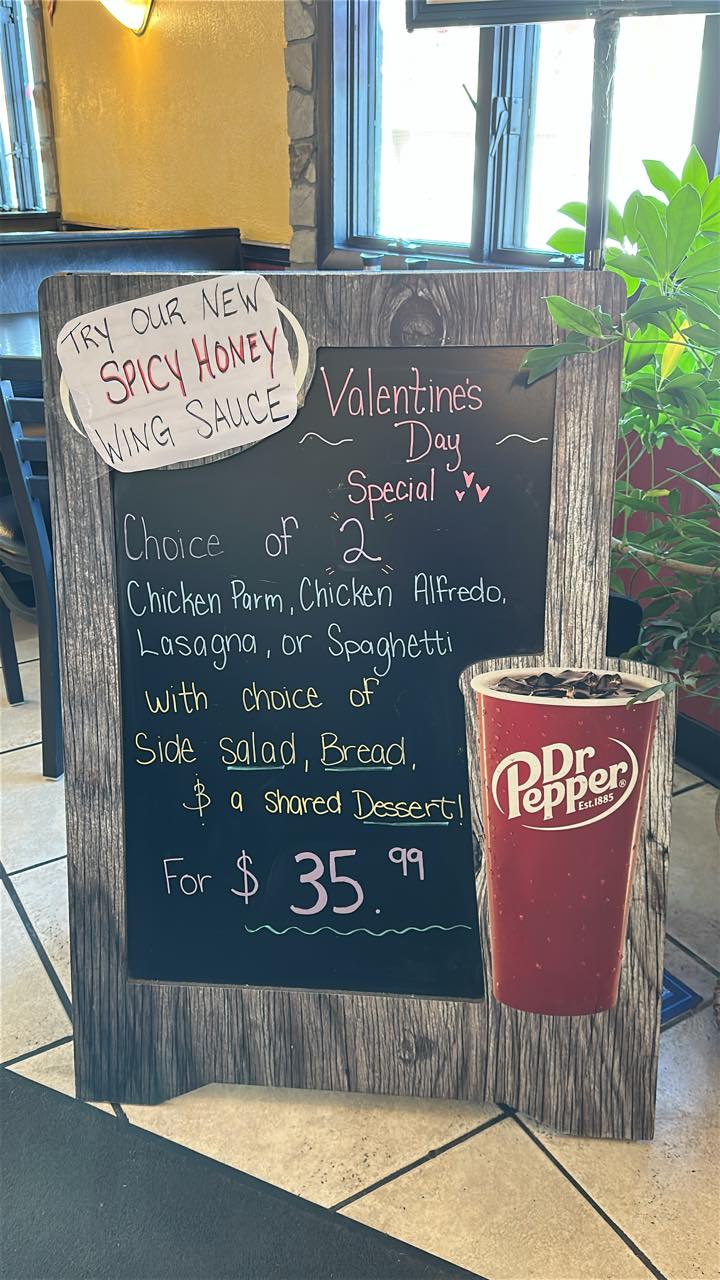 TRY OUR NEW
SPICY HONEY
WING SAUCE
Valentine's
Day
Special
Choice of 2
Chicken Parm, Chicken Alfredo,
Lasagna, or Spaghetti
with choice of
Side salad, Bread,
$ a shared Dessert!
For $ 35.99
Dr
Pepper®
Est.1885